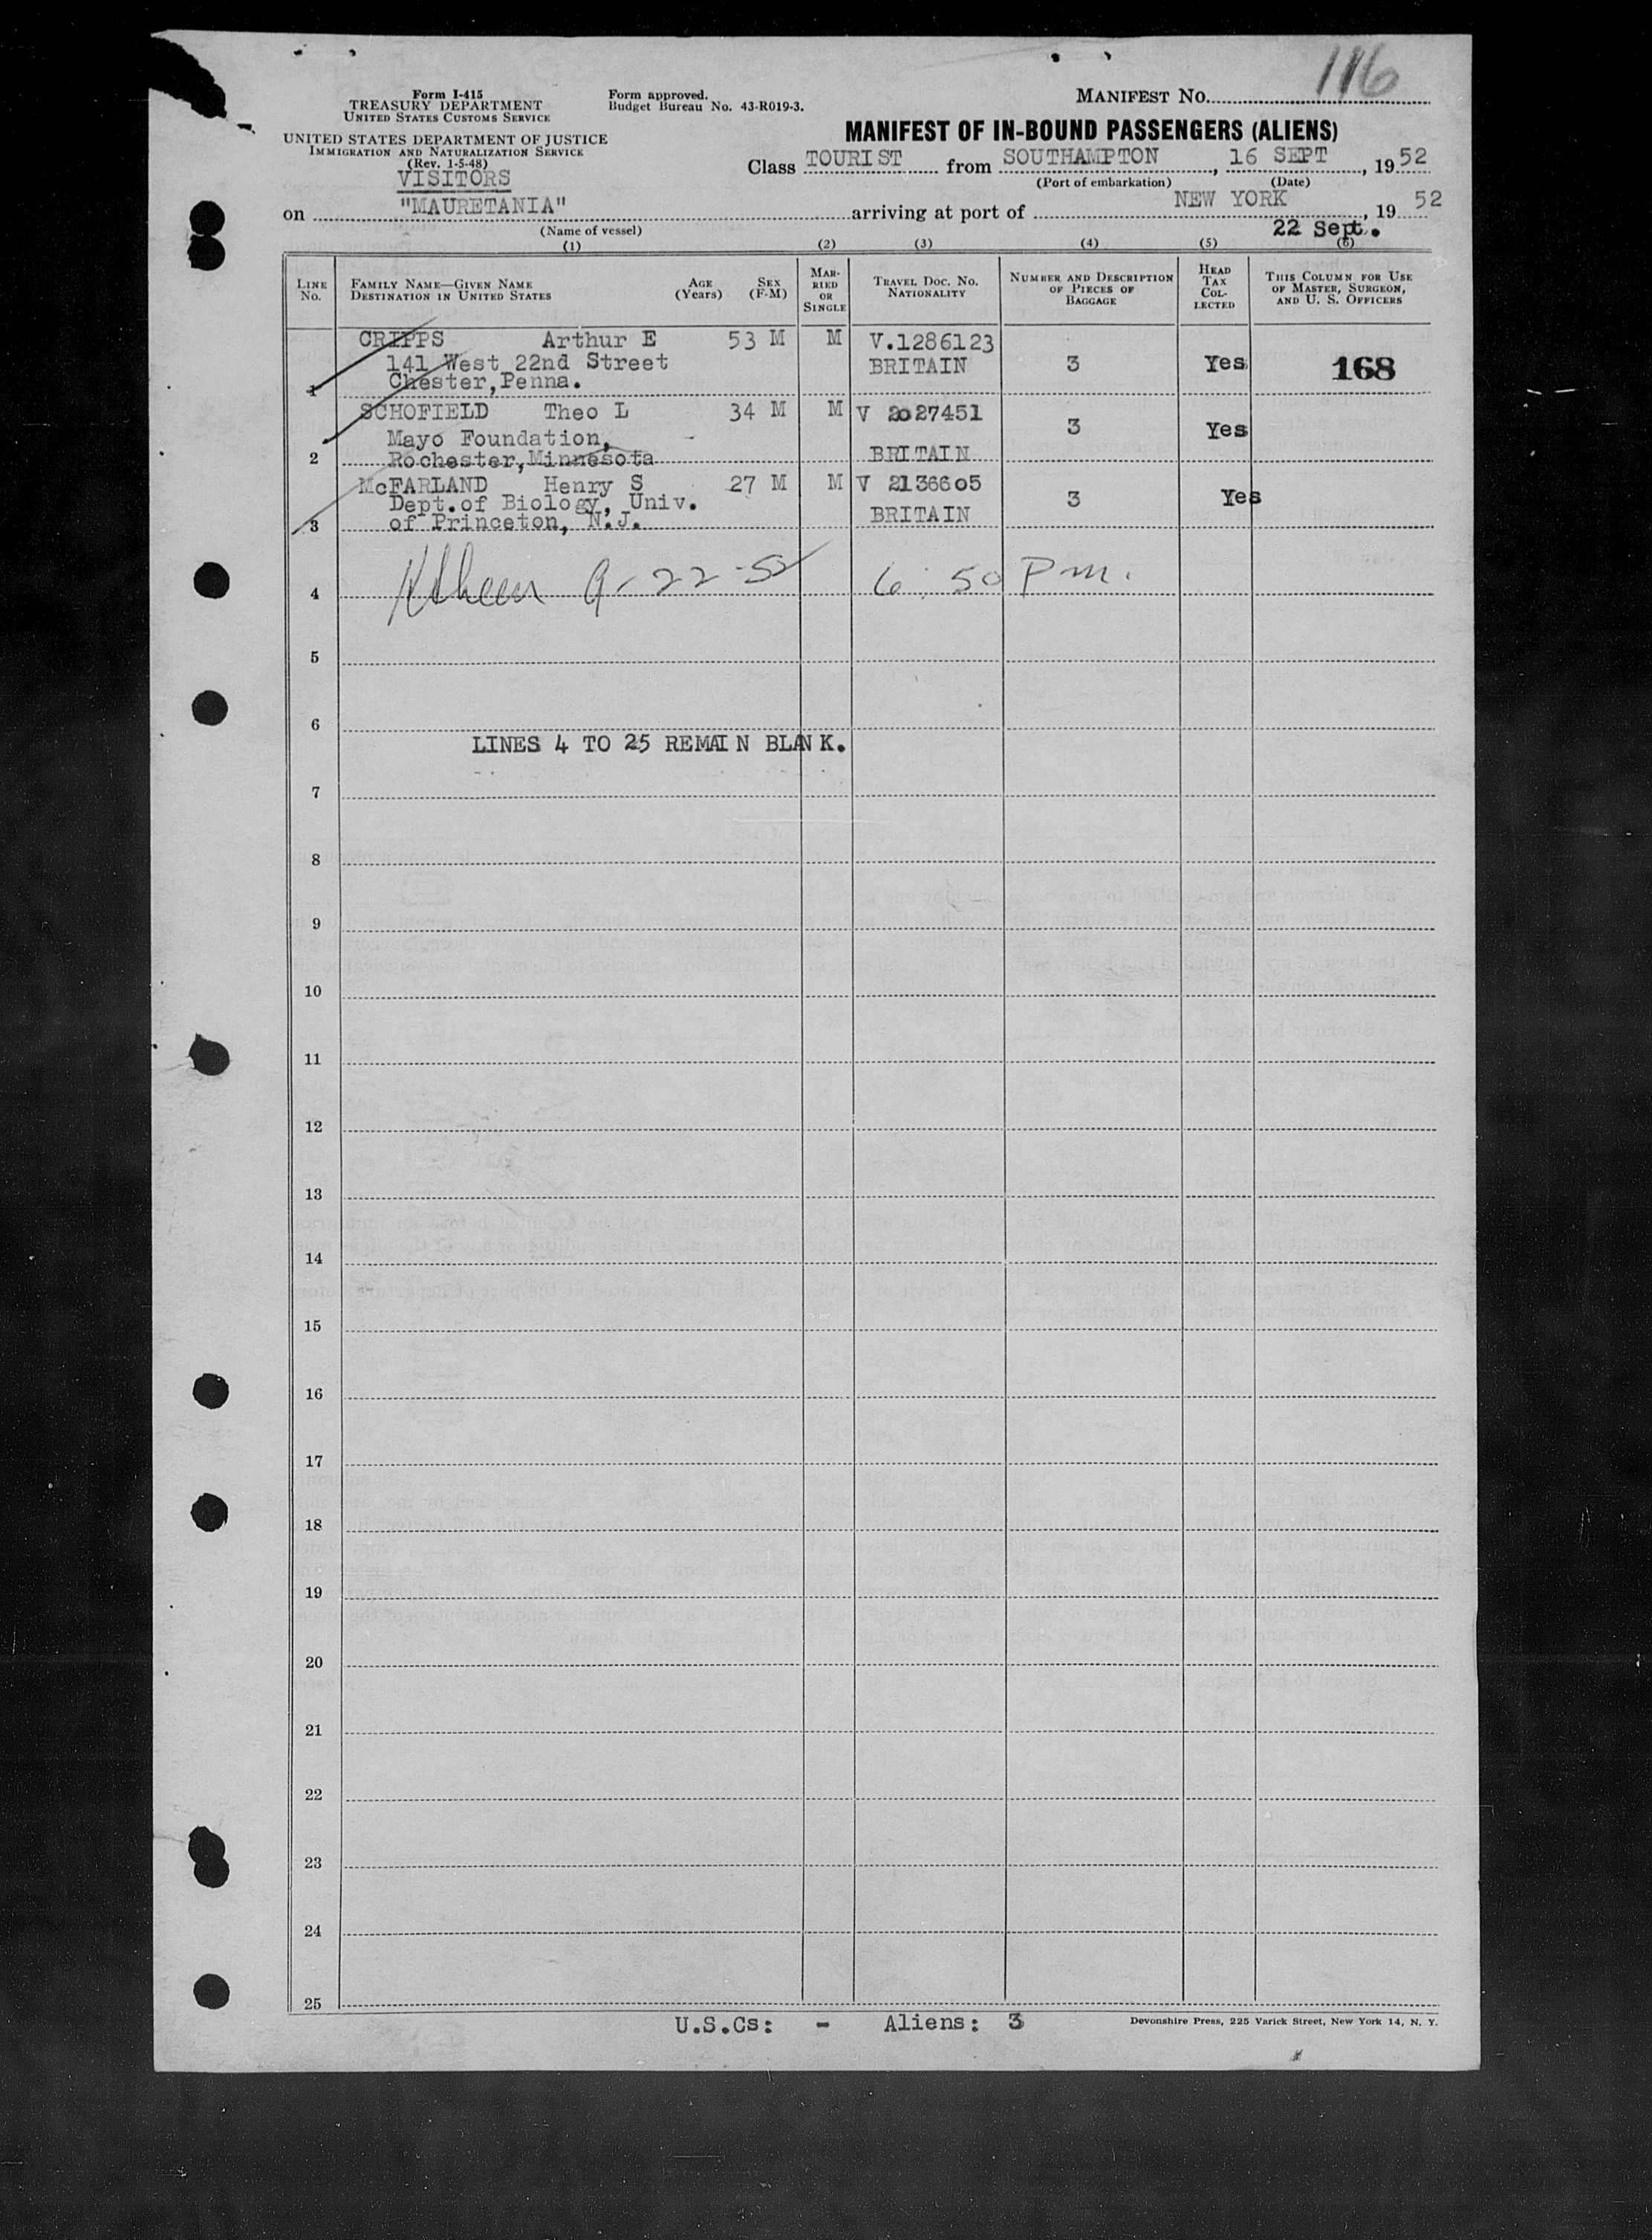 116
Form I-415
TREASURY DEPARTMENT
UNITED STATES CUSTOMS SERVICE
UNITED STATES DEPARTMENT OF JUSTICE
IMMIGRATION AND NATURALIZATION SERVICE
(Rev. 1-5-48)
VISITORS
Form approved.
Budget Bureau No. 43-R019-3.
MANIFEST NO.
MANIFEST OF IN-BOUND PASSENGERS (ALIENS)
Class TOURIST from SOUTHAMPTON, 16 SEPT, 1952
(Port of embarkation) (Date)
on "MAURETANIA" arriving at port of NEW YORK, 19 52
(Name of vessel) 22 Sept.
(1) (2) (3) (4) (5) (6)
LINE NO.
FAMILY NAME—GIVEN NAME
DESTINATION IN UNITED STATES
AGE (Years)
SEX (F-M)
MARRIED OR SINGLE
TRAVEL DOC. NO.
NATIONALITY
NUMBER AND DESCRIPTION OF PIECES OF BAGGAGE
HEAD TAX COLLECTED
THIS COLUMN FOR USE OF MASTER, SURGEON, AND U. S. OFFICERS
CRIPPS Arthur E 53 M M V.1286123
141 West 22nd Street BRITAIN 3 Yes 168
1 Chester,Penna.
SCHOFIELD Theo L 34 M M V 2027451
Mayo Foundation, 3 Yes
2 Rochester,Minnesota BRITAIN
McFARLAND Henry S 27 M M V 2136605
Dept.of Biology, Univ. 3 Yes
3 of Princeton, N.J. BRITAIN
4 9-22-52 6:50 Pm.
5
6
LINES 4 TO 25 REMAIN BLANK.
7
8
9
10
11
12
13
14
15
16
17
18
19
20
21
22
23
24
25
U.S.Cs: - Aliens: 3
Devonshire Press, 225 Varick Street, New York 14, N. Y.